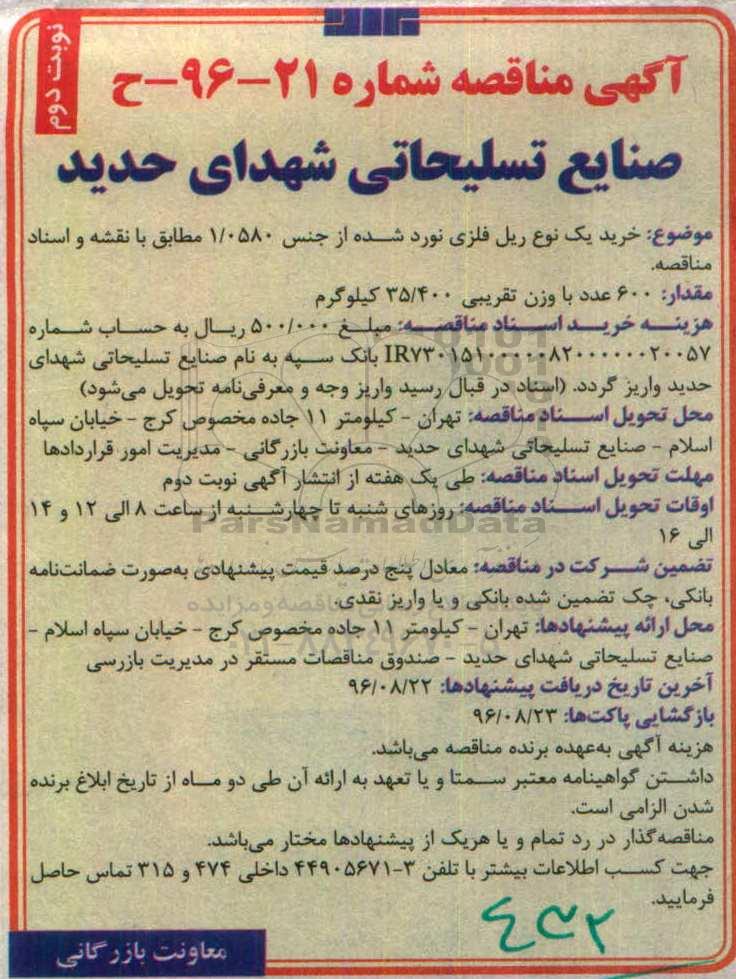 نوبت دوم
آگهی مناقصه شماره ۲۱-۹۶-ح
صنایع تسلیحاتی شهدای حدید
موضوع: خرید یک نوع ریل فلزی نورد شده از جنس ۱/۰۵۸۰ مطابق با نقشه و اسناد
مناقصه.
مقدار: ۶۰۰ عدد با وزن تقریبی ۳۵/۴۰۰ کیلوگرم
هزینه خرید اسناد مناقصه: مبلغ ۵۰۰/۰۰۰ ریال به حساب شماره
IR۷۳۰۱۵۱۰۰۰۰۰۸۲۰۰۰۰۰۰۲۰۰۵۷ بانک سپه به نام صنایع تسلیحاتی شهدای
حدید واریز گردد. (اسناد در قبال رسید واریز وجه و معرفی‌نامه تحویل می‌شود)
محل تحویل اسناد مناقصه: تهران - کیلومتر ۱۱ جاده مخصوص کرج - خیابان سپاه
اسلام - صنایع تسلیحاتی شهدای حدید - معاونت بازرگانی - مدیریت امور قراردادها
مهلت تحویل اسناد مناقصه: طی یک هفته از انتشار آگهی نوبت دوم
اوقات تحویل اسناد مناقصه: روزهای شنبه تا چهارشنبه از ساعت ۸ الی ۱۲ و ۱۴
الی ۱۶
ParsNamadData
تضمین شرکت در مناقصه: معادل پنج درصد قیمت پیشنهادی به‌صورت ضمانت‌نامه
بانکی، چک تضمین شده بانکی و یا واریز نقدی.
محل ارائه پیشنهادها: تهران - کیلومتر ۱۱ جاده مخصوص کرج - خیابان سپاه اسلام -
صنایع تسلیحاتی شهدای حدید - صندوق مناقصات مستقر در مدیریت بازرسی
آخرین تاریخ دریافت پیشنهادها: ۹۶/۰۸/۲۲
بازگشایی پاکت‌ها: ۹۶/۰۸/۲۳
هزینه آگهی به‌عهده برنده مناقصه می‌باشد.
داشتن گواهینامه معتبر سمتا و یا تعهد به ارائه آن طی دو ماه از تاریخ ابلاغ برنده
شدن الزامی است.
مناقصه‌گذار در رد تمام و یا هریک از پیشنهادها مختار می‌باشد.
جهت کسب اطلاعات بیشتر با تلفن ۳-۴۴۹۰۵۶۷۱ داخلی ۴۷۴ و ۳۱۵ تماس حاصل
فرمایید.
معاونت بازرگانی